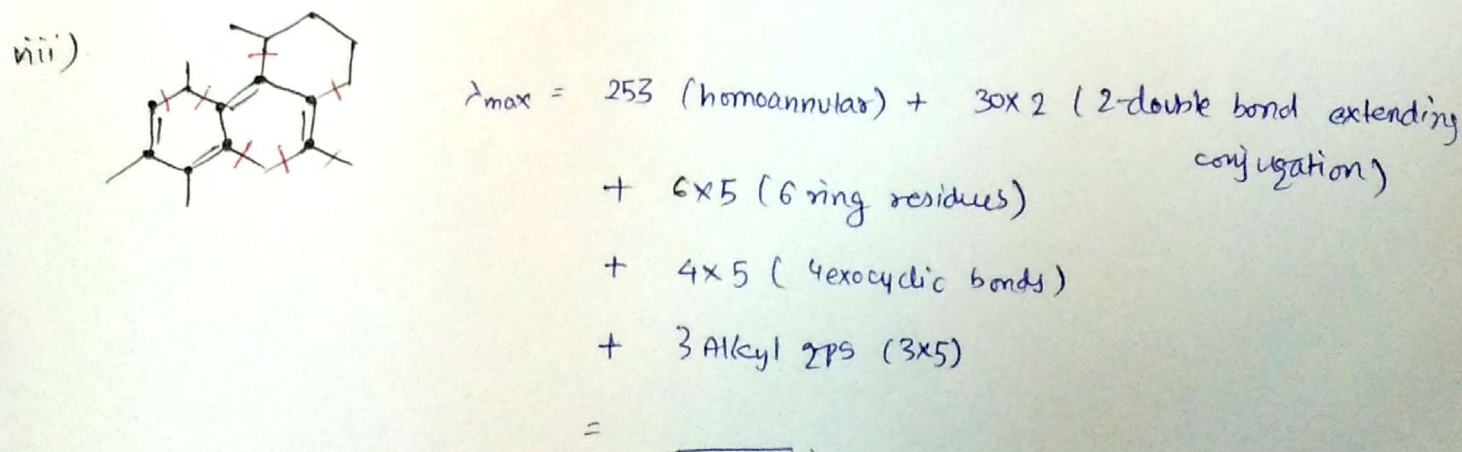 viii)
λmax = 253 (homoannular) + 30x2 (2-double bond extending
conjugation)
+ 6x5 (6 ring residues)
+ 4x5 (4exocyclic bonds)
+ 3 Alkyl gps (3x5)
=